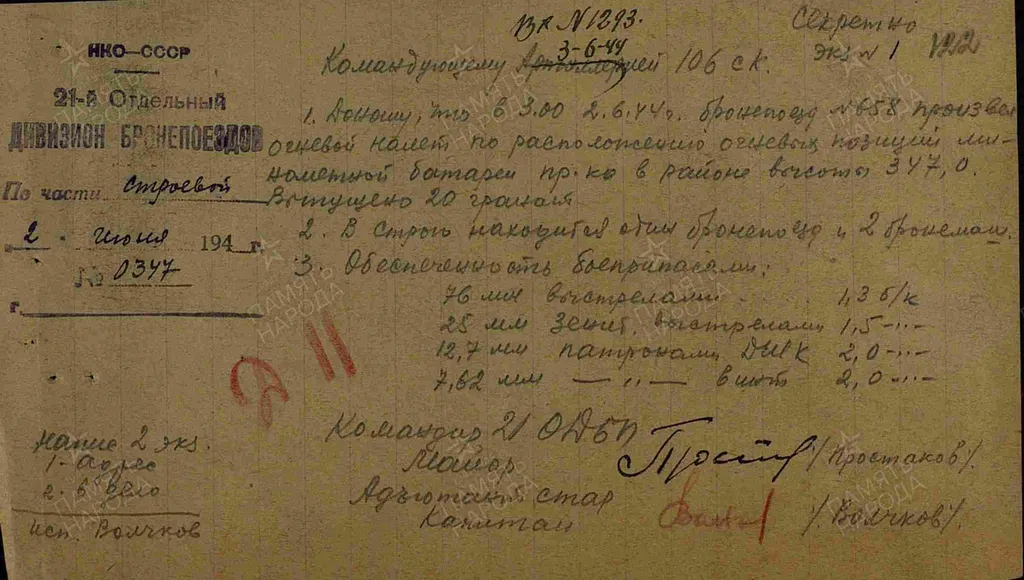 Вх №1293.
3-6-44
Секретно
экз №1
122
НКО–СССР
21-й Отдельный
ДИВИЗИОН БРОНЕПОЕЗДОВ
По части строевой
"2" июня 194 г.
№ 0347
г.
Командующему Артиллерией 106 ск.
1. Доношу, что в 3.00 2.6.44г. бронепоезд №658 произвел
огневой налет по расположению огневых позиций ми-
нометной батареи пр-ка в районе высоты 347,0.
Выпущено 20 гранат
2. В строю находится один бронепоезд и 2 бронемаш.
3. Обеспеченность боеприпасами:
76 мм выстрелами 1,3 б/к
25 мм зенит. выстрелами 1,5 -"-
12,7 мм патронами ДШК 2,0 -"-
7,62 мм — " — винт 2,0 -"-
Д 11
Командир 21 ОДБП
Майор /Простаков/.
Адъютант стар
Капитан /Волчков/.
напис 2 экз.
1- адрес
2. в дело
исп. Волчков
ПАМЯТЬ НАРОДА